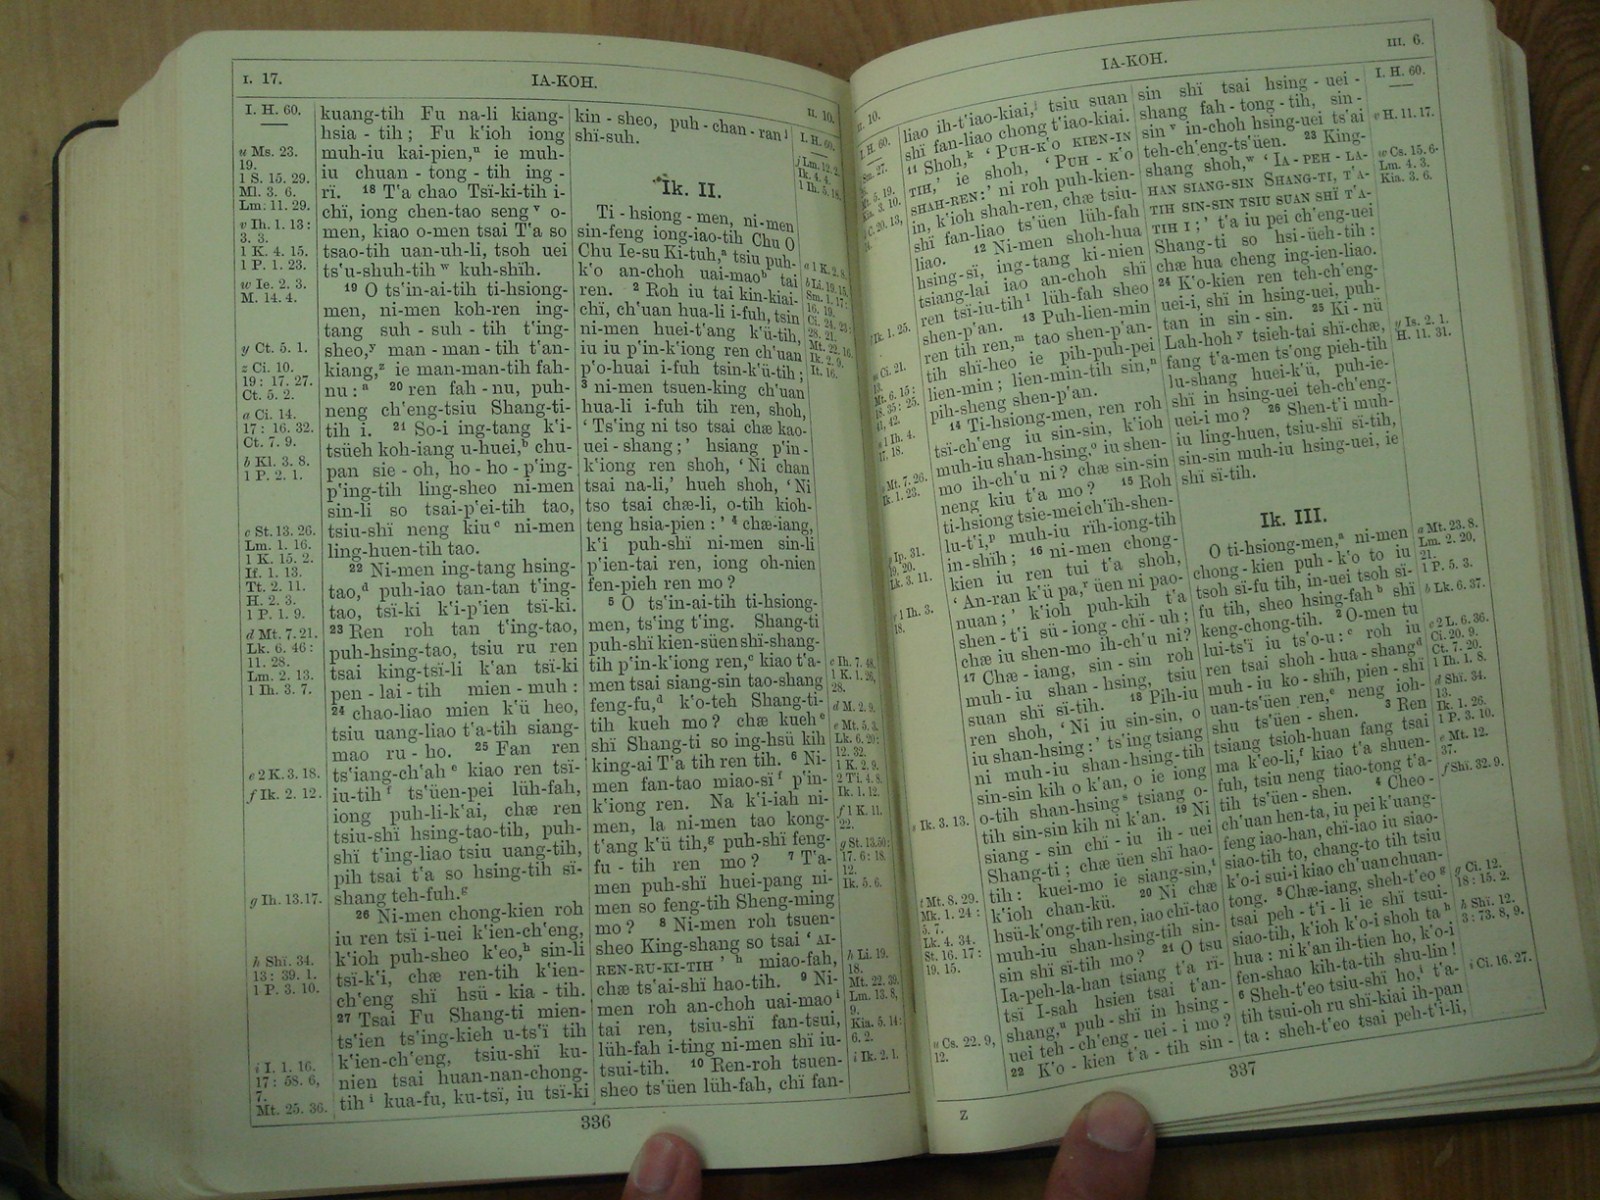 I. 17.
IA-KOH.
II. 10.
I. H. 60.
u Ms. 23.
19.
1 S. 15. 29.
Ml. 3. 6.
Lm. 11. 29.
v Ih. 1. 13:
3. 3.
1 K. 4. 15.
1 P. 1. 23.
w Ie. 2. 3.
M. 14. 4.
y Ct. 5. 1.
z Ci. 10.
19: 17. 27.
Ct. 5. 2.
a Ci. 14.
17: 16. 32.
Ct. 7. 9.
b Kl. 3. 8.
1 P. 2. 1.
c St. 13. 26.
Lm. 1. 16.
1 K. 15. 2.
If. 1. 13.
Tt. 2. 11.
H. 2. 3.
1 P. 1. 9.
d Mt. 7. 21.
Lk. 6. 46:
11. 28.
Lm. 2. 13.
1 Ih. 3. 7.
e 2 K. 3. 18.
f Ik. 2. 12.
g Ih. 13. 17.
h Shï. 34.
13: 39. 1.
1 P. 3. 10.
i I. 1. 16.
17: 58. 6,
7.
Mt. 25. 36.
kuang-tih Fu na-li kiang-
hsia-tih; Fu k'ioh iong
muh-iu kai-pien,ⁿ ie muh-
iu chuan-tong-tih ing-
rï. ¹⁸ T'a chao Tsï-ki-tih i-
chï, iong chen-tao sengᵛ o-
men, kiao o-men tsai T'a so
tsao-tih uan-uh-li, tsoh uei
ts'u-shuh-tihʷ kuh-shïh.
¹⁹ O ts'in-ai-tih ti-hsiong-
men, ni-men koh-ren ing-
tang suh-suh-tih t'ing-
sheo,ʸ man-man-tih t'an-
kiang,ᶻ ie man-man-tih fah-
nu:ᵃ ²⁰ ren fah-nu, puh-
neng ch'eng-tsiu Shang-ti-
tih i. ²¹ So-i ing-tang k'i-
tsüeh koh-iang u-huei,ᵇ chu-
pan sie-oh, ho-ho-p'ing-
p'ing-tih ling-sheo ni-men
sin-li so tsai-p'ei-tih tao,
tsiu-shï neng kiuᶜ ni-men
ling-huen-tih tao.
²² Ni-men ing-tang hsing-
tao,ᵈ puh-iao tan-tan t'ing-
tao, tsï-ki k'i-p'ien tsï-ki.
²³ Ren roh tan t'ing-tao,
puh-hsing-tao, tsiu ru ren
tsai king-tsï-li k'an tsï-ki
pen-lai-tih mien-muh:
²⁴ chao-liao mien k'ü heo,
tsiu uang-liao t'a-tih siang-
mao ru-ho. ²⁵ Fan ren
ts'iang-ch'ahᵉ kiao ren tsï-
iu-tihᶠ ts'üen-pei lüh-fah,
iong puh-li-k'ai, chæ ren
tsiu-shï hsing-tao-tih, puh-
shï t'ing-liao tsiu uang-tih,
pih tsai t'a so hsing-tih sï-
shang teh-fuh.ᵍ
²⁶ Ni-men chong-kien roh
iu ren tsï i-uei k'ien-ch'eng,
k'ioh puh-sheo k'eo,ʰ sin-li
tsï-k'i, chæ ren-tih k'ien-
ch'eng shï hsü-kia-tih.
²⁷ Tsai Fu Shang-ti mien-
ts'ien ts'ing-kieh u-ts'ï tih
k'ien-ch'eng, tsiu-shï ku-
nien tsai huan-nan-chong-
tihⁱ kua-fu, ku-tsï, iu tsï-ki
kin-sheo, puh-chan-ranʲ
shï-suh.
Ik. II.
Ti-hsiong-men, ni-men
sin-feng iong-iao-tih Chu O
Chu Ie-su Ki-tuh,ᵃ tsiu puh-
k'o an-choh uai-maoᵇ tai
ren. ² Roh iu tai kin-kiai-
chï, ch'uan hua-li i-fuh, tsin
ni-men huei-t'ang k'ü-tih,
iu iu p'in-k'iong ren ch'uan
p'o-huai i-fuh tsin-k'ü-tih;
³ ni-men tsuen-king ch'uan
hua-li i-fuh tih ren, shoh,
‘Ts'ing ni tso tsai chæ kao-
uei-shang;’ hsiang p'in-
k'iong ren shoh, ‘Ni chan
tsai na-li,’ hueh shoh, ‘Ni
tso tsai chæ-li, o-tih kioh-
teng hsia-pien:’ ⁴ chæ-iang,
k'i puh-shï ni-men sin-li
p'ien-tai ren, iong oh-nien
fen-pieh ren mo?
⁵ O ts'in-ai-tih ti-hsiong-
men, ts'ing t'ing. Shang-ti
puh-shï kien-süen shï-shang-
tih p'in-k'iong ren,ᶜ kiao t'a-
men tsai siang-sin tao-shang
feng-fu,ᵈ k'o-teh Shang-ti-
tih kueh mo? chæ kuehᵉ
shï Shang-ti so ing-hsü kih
king-ai T'a tih ren tih. ⁶ Ni-
men fan-tao miao-sïᶠ p'in-
k'iong ren. Na k'i-iah ni-
men, la ni-men tao kong-
t'ang k'ü tih,ᵍ puh-shï feng-
fu-tih ren mo? ⁷ T'a-
men puh-shï huei-pang ni-
men so feng-tih Sheng-ming
mo? ⁸ Ni-men roh tsuen-
sheo King-shang so tsai ‘AI-
REN-RU-KI-TIH’ʰ miao-fah,
chæ ts'ai-shï hao-tih. ⁹ Ni-
men roh an-choh uai-maoⁱ
tai ren, tsiu-shï fan-tsui,
lüh-fah i-ting ni-men shï iu-
tsui-tih. ¹⁰ Ren-roh tsuen-
sheo ts'üen lüh-fah, chï fan-
I. H. 60.
j Lm. 12. 2.
Ik. 4. 4.
1 Ih. 5. 18.
a 1 K. 2. 8.
b Li. 19. 15.
Sm. 1. 17:
16. 19.
Ci. 24. 23:
28. 21.
Mt. 22. 16.
Ik. 2. 9.
It. 16.
c Ih. 7. 48.
1 K. 1. 26,
28.
d M. 2. 9.
e Mt. 5. 3.
Lk. 6. 20:
12. 32.
1 K. 2. 9.
2 Ti. 4. 8.
Ik. 1. 12.
f 1 K. 11.
22.
g St. 13. 50:
17. 6: 18.
12.
Ik. 5. 6.
h Li. 19.
18.
Mt. 22. 39.
Lm. 13. 8,
9.
Kia. 5. 14:
6. 2.
i Ik. 2. 1.
336
II. 10.
IA-KOH.
III. 6.
I. H. 60.
Ik. 1. 25.
Ik. 1. 23.
Lk. 3. 11.
18.
s Ik. 3. 13.
t Mt. 8. 29.
Mk. 1. 24:
5. 7.
Lk. 4. 34.
St. 16. 17:
19. 15.
u Cs. 22. 9,
12.
liao ih-t'iao-kiai,ʲ tsiu suan
shï fan-liao chong t'iao-kiai.
¹¹ Shoh,ᵏ ‘PUH-K'O KIEN-IN
TIH,’ ie shoh, ‘PUH-K'O
SHAH-REN:’ ni roh puh-kien-
in, k'ioh shah-ren, chæ tsiu-
shï fan-liao ts'üen lüh-fah
liao. ¹² Ni-men shoh-hua
hsing-sï, ing-tang ki-nien
tsiang-lai iao an-choh shï
ren tsï-iu-tihˡ lüh-fah sheo
shen-p'an. ¹³ Puh-lien-min
ren tih ren,ᵐ tao shen-p'an-
tih shï-heo ie pih-puh-pei
lien-min; lien-min-tih sin,ⁿ
pih-sheng shen-p'an.
¹⁴ Ti-hsiong-men, ren roh
tsï-ch'eng iu sin-sin, k'ioh
muh-iu shan-hsing,ᵒ iu shen-
mo ih-ch'u ni? chæ sin-sin
neng kiu t'a mo? ¹⁵ Roh
ti-hsiong tsie-mei ch'ïh-shen-
lu-t'i,ᵖ muh-iu rïh-iong-tih
in-shïh; ¹⁶ ni-men chong-
kien iu ren tui t'a shoh,
‘An-ran k'ü pa,ʳ üen ni pao-
nuan;’ k'ioh puh-kih t'a
shen-t'i sü-iong-chï-uh;
chæ iu shen-mo ih-ch'u ni?
¹⁷ Chæ-iang, sin-sin roh
muh-iu shan-hsing, tsiu
suan shï sï-tih. ¹⁸ Pih-iu
ren shoh, ‘Ni iu sin-sin, o
iu shan-hsing:’ ts'ing tsiang
ni muh-iu shan-hsing-tih
sin-sin kih o k'an, o ie iong
o-tih shan-hsingˢ tsiang o-
tih sin-sin kih ni k'an. ¹⁹ Ni
siang-sin chï-iu ih-uei
Shang-ti; chæ üen shï hao-
tih: kuei-mo ie siang-sin,ᵗ
k'ioh chan-kü. ²⁰ Ni chæ
hsü-k'ong-tih ren, iao chï-tao
muh-iu shan-hsing-tih sin-
sin shï sï-tih mo? ²¹ O tsu
Ia-peh-la-han tsiang t'a rï-
tsï I-sah hsien tsai t'an-
shang,ᵘ puh-shï in hsing-
uei teh-ch'eng-uei-i mo?
²² K'o-kien t'a-tih sin-
sin shï tsai hsing-uei-
shang fah-tong-tih, sin-
sinᵛ in-choh hsing-uei ts'ai
teh-ch'eng-ts'üen. ²³ King-
shang shoh,ʷ ‘IA-PEH-LA-
HAN SIANG-SIN SHANG-TI, T'A-
TIH SIN-SIN TSIU SUAN SHÏ T'A-
TIH I;’ t'a iu pei ch'eng-uei
Shang-ti so hsi-üeh-tih:
chæ hua cheng ing-ien-liao.
²⁴ K'o-kien ren teh-ch'eng-
uei-i, shï in hsing-uei, puh-
tan in sin-sin. ²⁵ Ki-nü
Lah-hohʸ tsieh-tai shï-chæ,
fang t'a-men ts'ong pieh-tih
lu-shang huei-k'ü, puh-ie-
shï in hsing-uei teh-ch'eng-
uei-i mo? ²⁶ Shen-t'i muh-
iu ling-huen, tsiu-shï sï-tih,
sin-sin muh-iu hsing-uei, ie
shï sï-tih.
Ik. III.
O ti-hsiong-men,ᵃ ni-men
chong-kien puh-k'o to iu
tsoh sï-fu tih, in-uei tsoh sï-
fu tih, sheo hsing-fahᵇ shï
keng-chong-tih. ² O-men tu
lui-ts'ï iu ts'o-u:ᶜ roh iu
ren tsai shoh-hua-shangᵈ
muh-iu ko-shïh, pien-shï
uan-ts'üen ren,ᵉ neng ioh-
shu ts'üen-shen. ³ Ren
tsiang tsioh-huan fang tsai
ma k'eo-li,ᶠ kiao t'a shuen-
fuh, tsiu neng tiao-tong t'a-
tih ts'üen-shen. ⁴ Cheo-
ch'uan hen-ta, iu pei k'uang-
feng iao-han, chï-iao iu siao-
siao-tih to, chang-to tih tsiu
k'o-i sui-i kiao ch'uan chuan-
tong. ⁵ Chæ-iang, sheh-t'eoᵍ
tsai peh-t'i-li ie shï tsui-
siao-tih, k'ioh k'o-i shoh taʰ
hua: ni k'an ih-tien ho, k'o-i
fen-shao kih-ta-tih shu-lin!
⁶ Sheh-t'eo tsiu-shï ho,ⁱ t'a-
tih tsui-oh ru shï-kiai ih-pan
ta: sheh-t'eo tsai peh-t'i-li,
I. H. 60.
v H. 11. 17.
w Cs. 15. 6.
Lm. 4. 3.
Kia. 3. 6.
y Is. 2. 1.
H. 11. 31.
a Mt. 23. 8.
Lm. 2. 20,
21.
1 P. 5. 3.
b Lk. 6. 37.
c 2 L. 6. 36.
Ci. 20. 9.
Ct. 7. 20.
1 Ih. 1. 8.
d Shï. 34.
13.
Ik. 1. 26.
1 P. 3. 10.
e Mt. 12.
37.
f Shï. 32. 9.
g Ci. 12.
18: 15. 2.
h Shï. 12.
3: 73. 8, 9.
i Ci. 16. 27.
337
Z